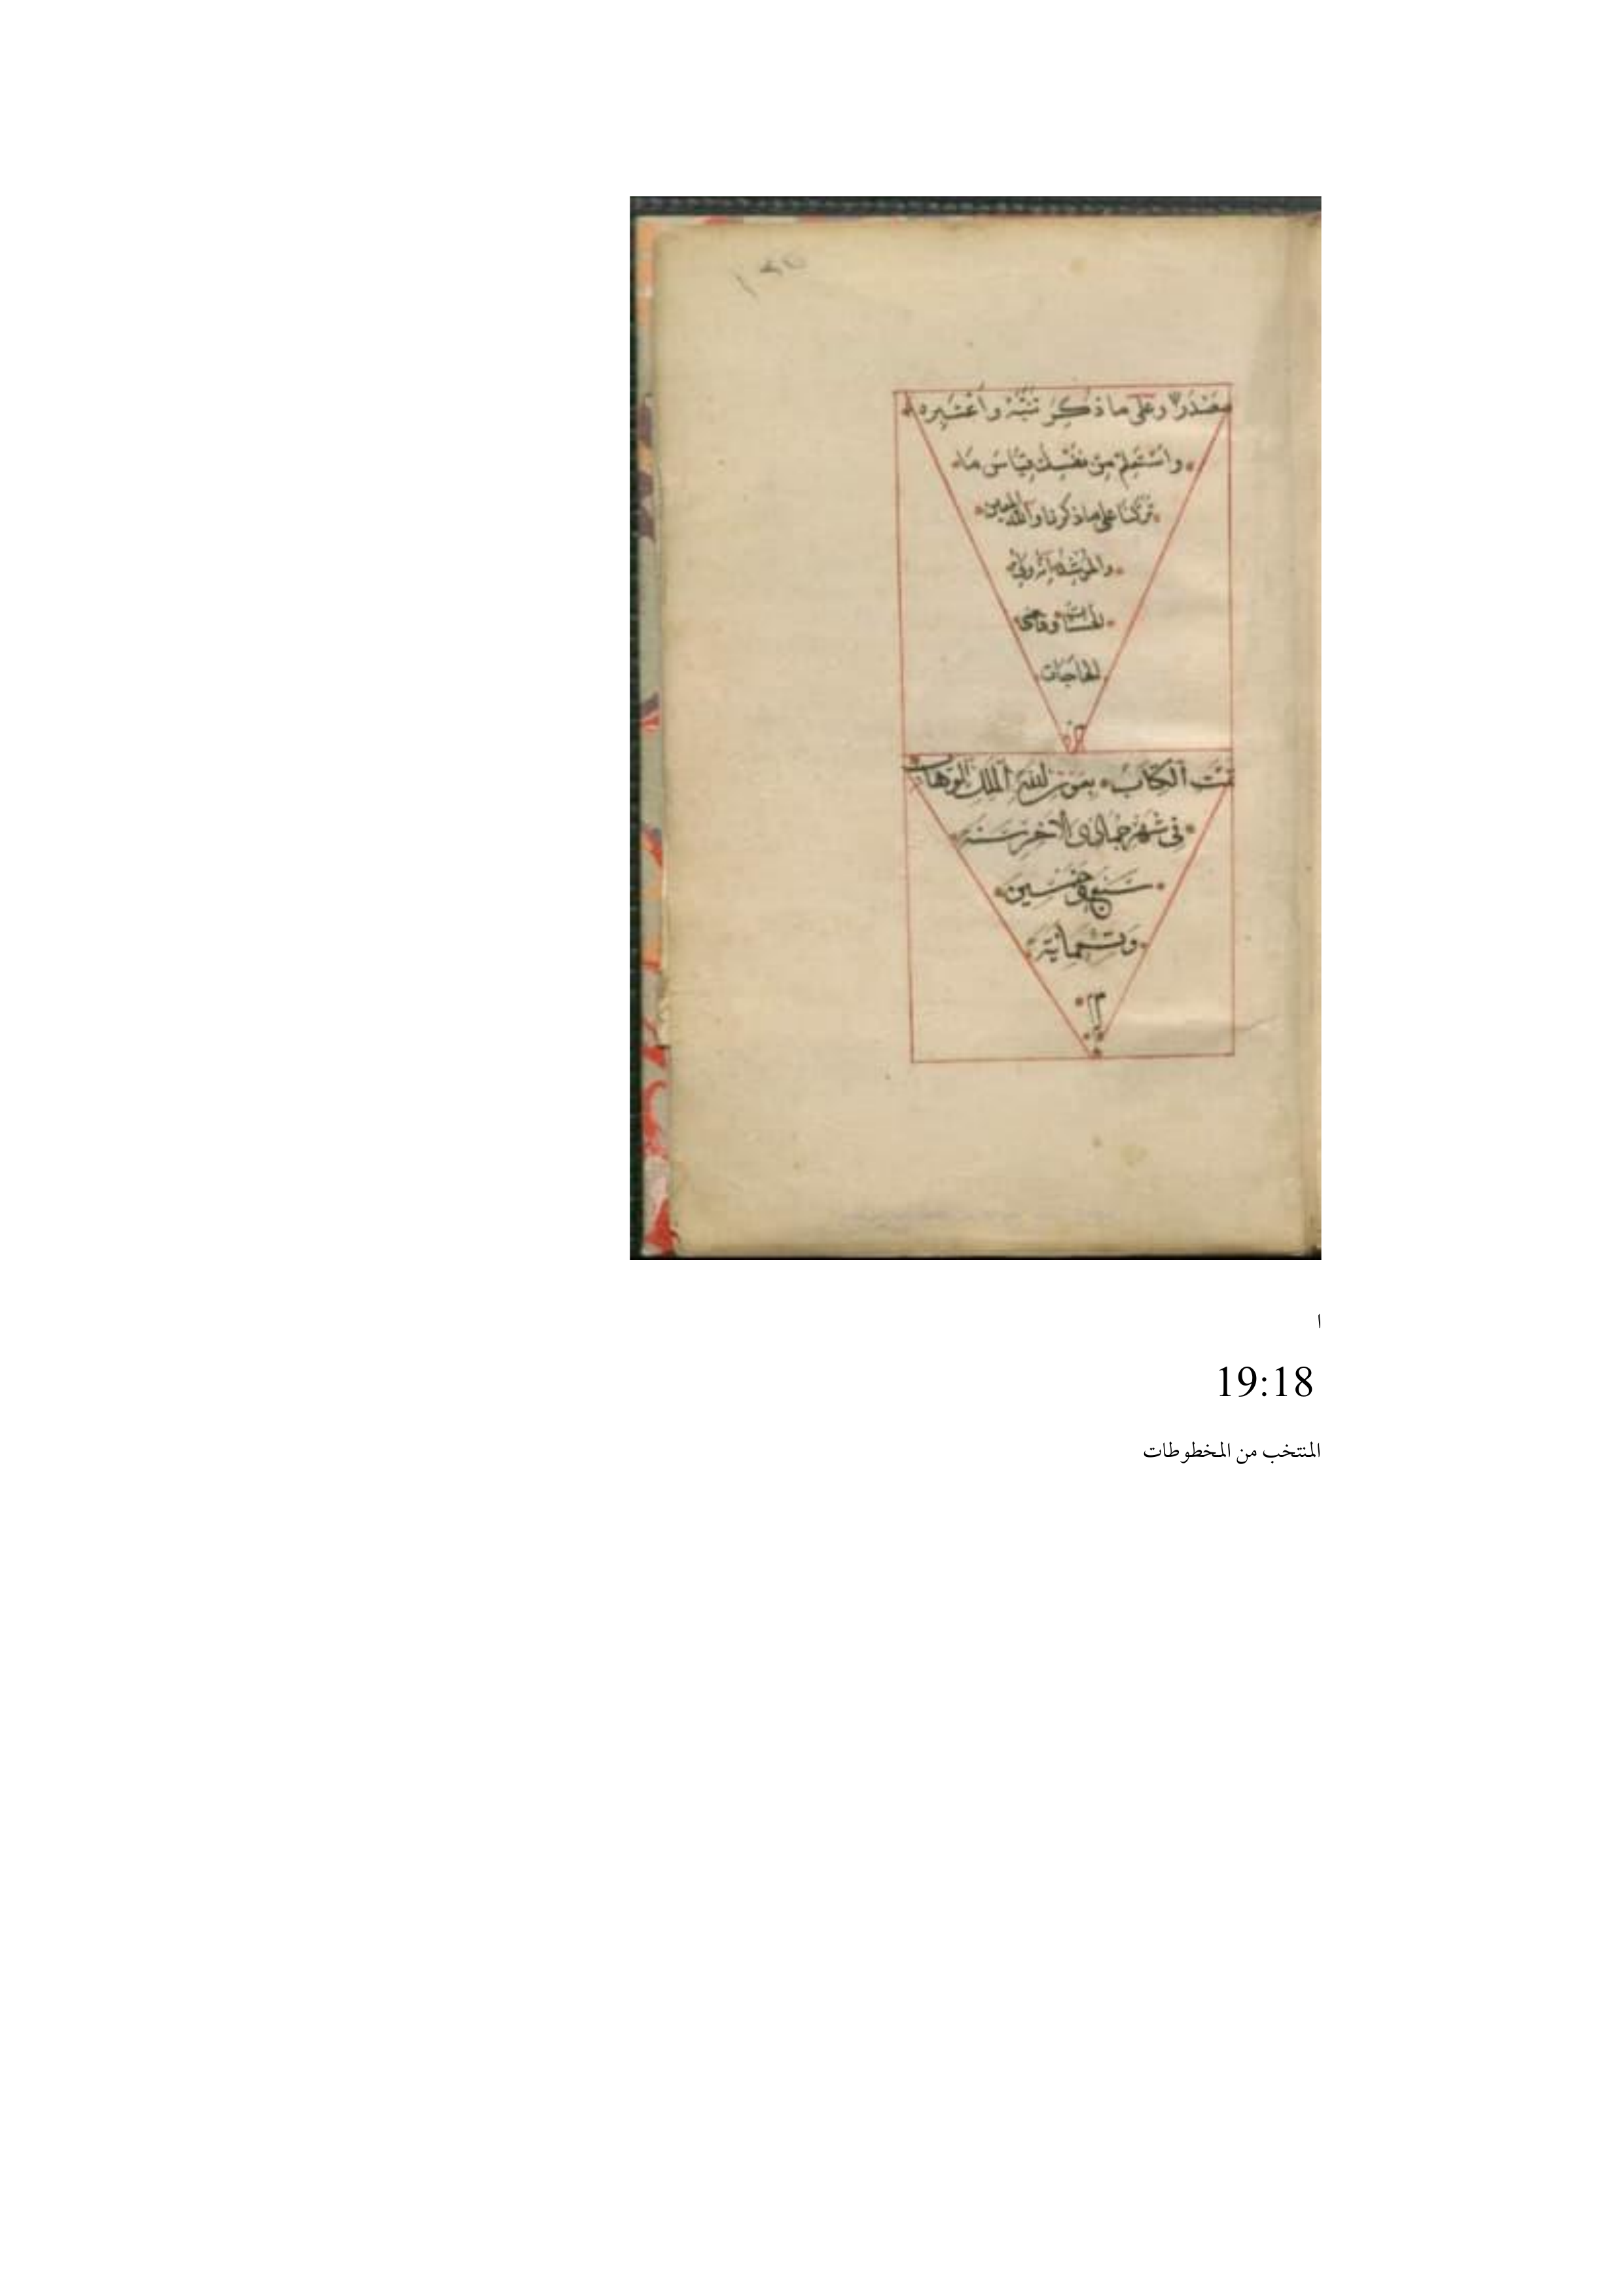 وعلى ما ذكر تنبّه واعتبره
واستعلم من نفسك قياس ما
تركنا على ما ذكرنا والله المعين
والمرشد انه ولي
الحسنات وقاضي
الحاجات
تمت الكتاب بعون الله الملك الوهاب
في شهر جمادى الاخر سنة
سبع وخمسين
وتسعمائة
ا
19:18
المنتخب من المخطوطات